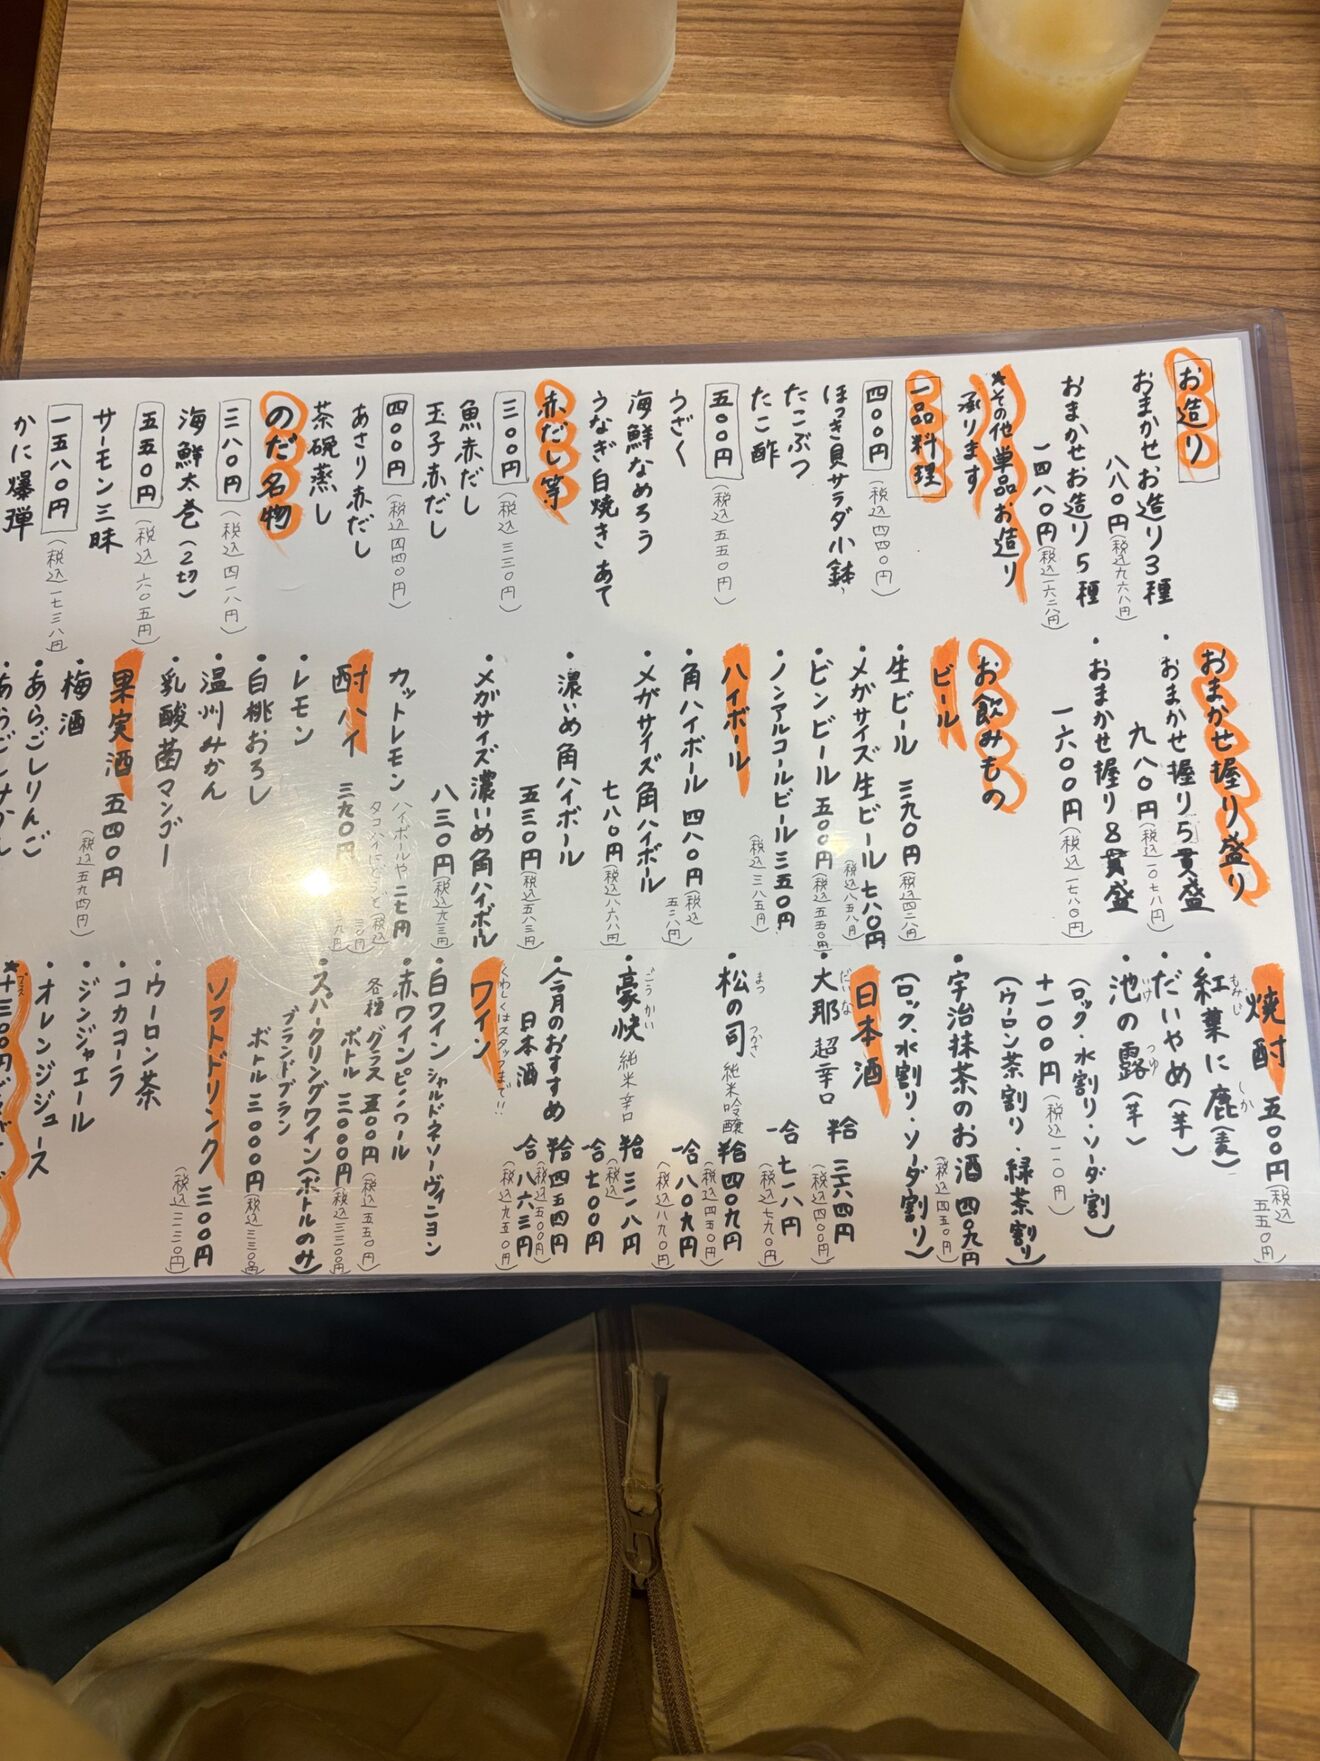 お造り
おまかせお造り3種
八八〇円(税込九六八円)
おまかせお造り5種
一四八〇円(税込一六二八円)
*その他単品お造り
承ります
一品料理
四〇〇円(税込四四〇円)
ほっき貝サラダ小鉢
たこぶつ
たこ酢
五〇〇円(税込五五〇円)
うざく
海鮮なめろう
うなぎ白焼きあて
赤だし等
三〇〇円(税込三三〇円)
魚赤だし
玉子赤だし
四〇〇円(税込四四〇円)
あさり赤だし
茶碗蒸し
のだ名物
三八〇円(税込四一八円)
海鮮太巻(2切)
五五〇円(税込六〇五円)
サーモン三昧
一五八〇円(税込一七三八円)
かに爆弾
おまかせ握り盛り
・おまかせ握り5貫盛
九八〇円(税込一〇七八円)
・おまかせ握り8貫盛
一六〇〇円(税込一七六〇円)
お飲みもの
ビール
・生ビール 三九〇円(税込四二八円)
・メガサイズ生ビール 七八〇円(税込八五八円)
・ビンビール 五〇〇円(税込五五〇円)
・ノンアルコールビール 三五〇円(税込三八五円)
ハイボール
・角ハイボール 四八〇円(税込五二八円)
・メガサイズ角ハイボール
七八〇円(税込八六八円)
・濃いめ角ハイボール
五三〇円(税込五八三円)
・メガサイズ濃いめ角ハイボール
八三〇円(税込九一三円)
カットレモン ハイボールや 二七円
タコハイにどうぞ(税込三〇円)
酎ハイ 三九〇円
・レモン
・白桃おろし
・温州みかん
・乳酸菌マンゴー
果実酒 五四〇円
(税込五九四円)
・梅酒
・あらごしりんご
焼酎 五〇〇円(税込五五〇円)
・紅葉に鹿(麦)
もみじ しか
・だいやめ(芋)
・池の露(芋)
いけ つゆ
(ロック・水割り・ソーダ割)
+一〇〇円(税込一一〇円)
(ウーロン茶割り・緑茶割り)
・宇治抹茶のお酒 四〇九円(税込四五〇円)
(ロック、水割り・ソーダ割り)
日本酒
・大那 超辛口 半合 三六四円(税込四〇〇円)
だいな
一合 七一八円(税込七九〇円)
・松の司 純米吟醸 半合 四〇九円(税込四五〇円)
まつ つかさ
一合 八〇九円(税込八九〇円)
・豪快 純米辛口 半合 三一八円
ごうかい
一合 七〇〇円
・今月のおすすめ 半合 四五四円(税込五〇〇円)
日本酒 一合 八六三円(税込九五〇円)
くわしくはスタッフまで!!
ワイン
・白ワイン シャルドネソーヴィニヨン
・赤ワイン ピノノワール
各種 グラス 五〇〇円(税込五五〇円)
ボトル 三〇〇〇円(税込三三〇〇円)
・スパークリングワイン(ボトルのみ)
ブランドブラン
ボトル 三〇〇〇円(税込三三〇〇円)
ソフトドリンク 三〇〇円
(税込三三〇円)
・ウーロン茶
・コカコーラ
・ジンジャエール
・オレンジジュース